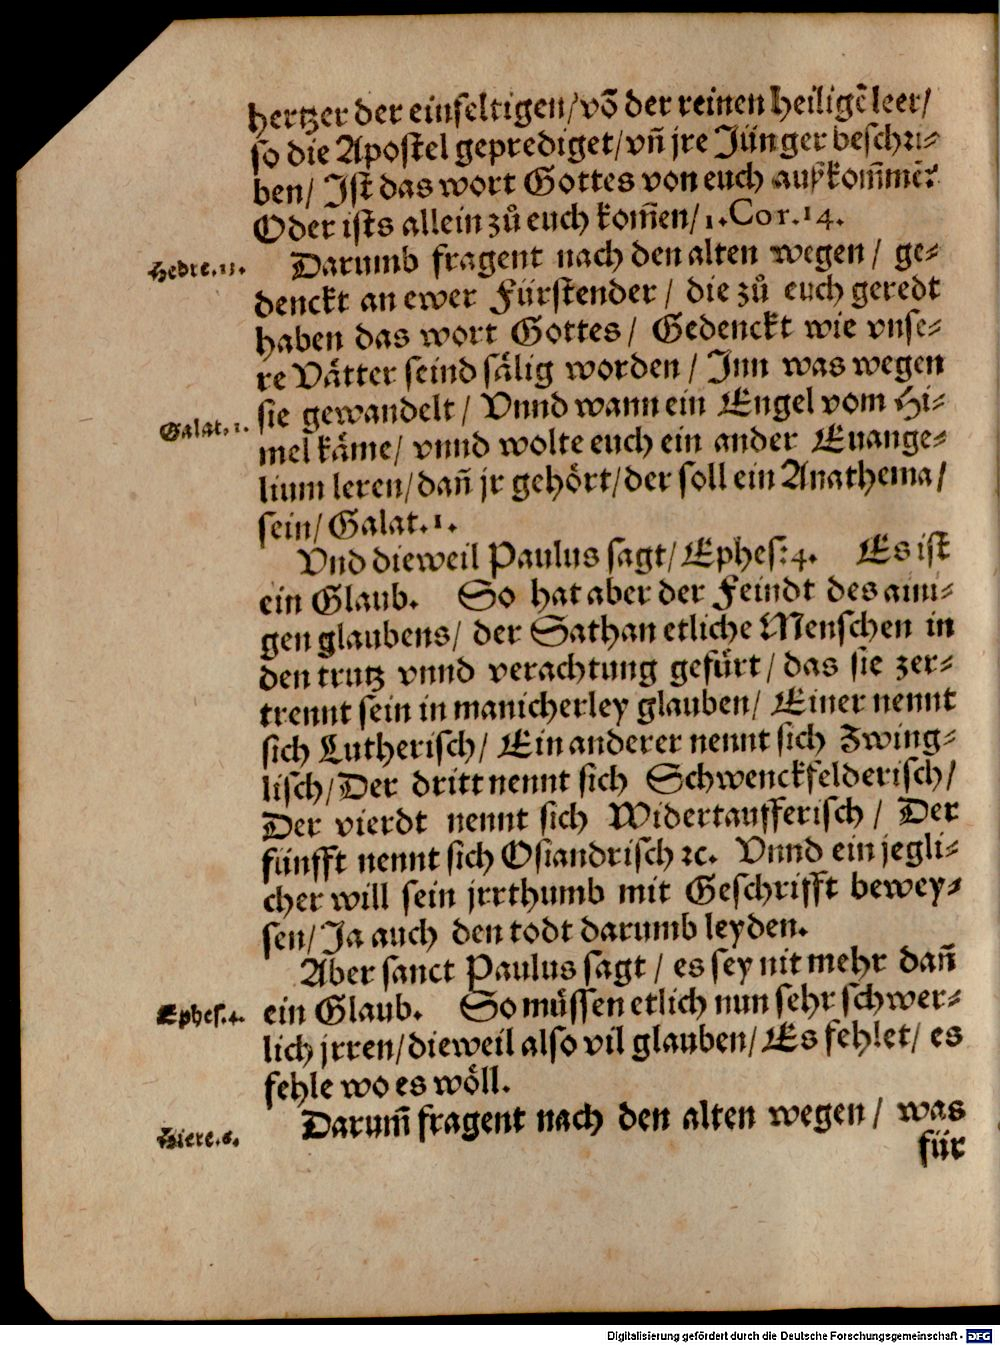 hertzer der einfeltigen/võ der reinen heiligẽ leer/
so die Apostel geprediget/vñ jre Jünger beschri-
ben/ Jst das wort Gottes von euch außkom̃mẽ?
Oder ists allein zů euch kom̃en/1.Cor.14.
Hebre.13.
Darumb fragent nach den alten wegen / ge-
denckt an ewer Fürstender / die zů euch geredt
haben das wort Gottes/ Gedenckt wie vnse-
re Vätter seind sälig worden / Jnn was wegen
sie gewandelt / Vnnd wann ein Engel vom Hi-
Galat.1.
mel käme/ vnnd wolte euch ein ander Euange-
lium leren/dañ jr gehört/der soll ein Anathema/
sein/ Galat.1.
Vnd dieweil Paulus sagt/ Ephes:4. Es ist
ein Glaub. So hat aber der Feindt des aini-
gen glaubens/ der Sathan etliche Menschen in
den trutz vnnd verachtung gefürt/ das sie zer-
trennt sein in manicherley glauben/ Einer nennt
sich Lutherisch/ Ein anderer nennt sich Zwing-
lisch/Der dritt nennt sich Schwenckfelderisch/
Der vierdt nennt sich Widertaufferisch / Der
fünfft nennt sich Osiandrisch ꝛc. Vnnd ein jegli-
cher will sein jrrthumb mit Geschrifft bewey-
sen/Ja auch den todt darumb leyden.
Aber sanct Paulus sagt / es sey nit mehr dañ
Ephes.4.
ein Glaub. So müssen etlich nun sehr schwer-
lich jrren/dieweil also vil glauben/Es fehlet/ es
fehle wo es wöll.
Darum̃ fragent nach den alten wegen / was
Hiere.6.
für
Digitalisierung gefördert durch die Deutsche Forschungsgemeinschaft - DFG